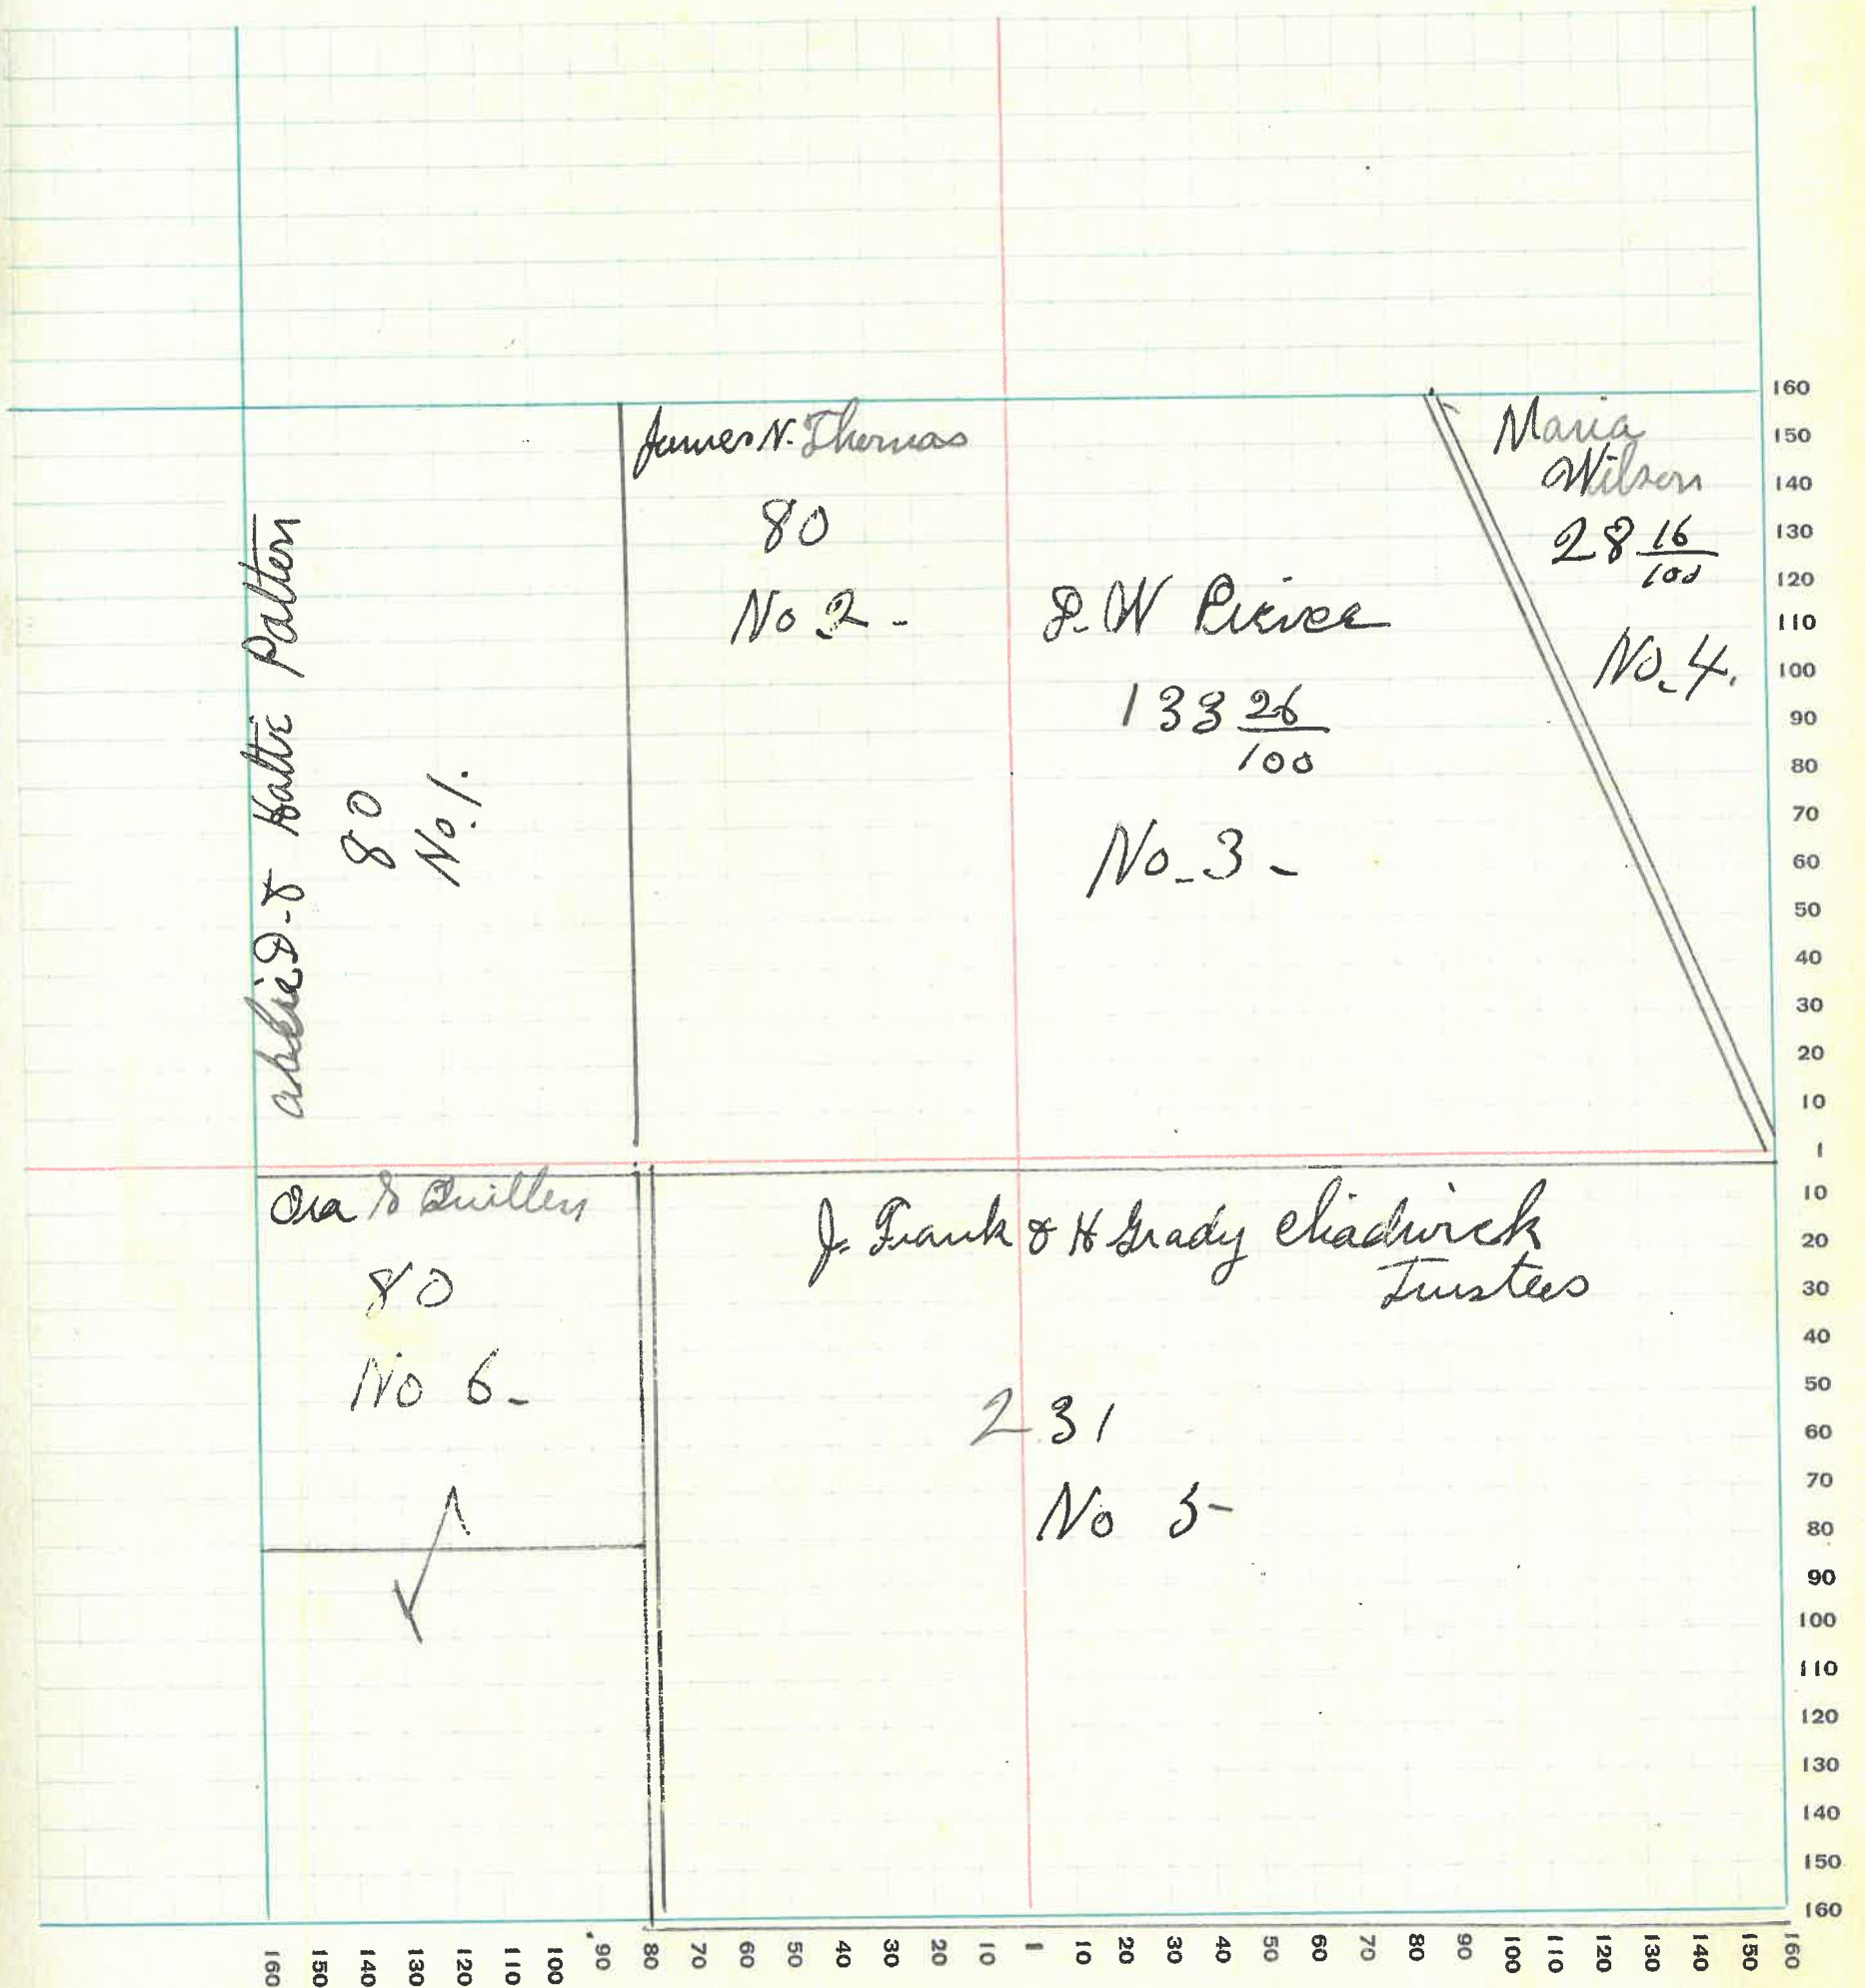 James N. Thomas
80
No 2 -
Maria
Wilson
28 16/100
No. 4.
Pierce
133 26/100
No - 3 -
& Hattie Patten
80
No. 1.
Ora S Quillen
80
No 6 -
J. Frank & H Grady Chadwick
Trustees
231
No 5 -
160
150
140
130
120
110
100
90
80
70
60
50
40
30
20
10
1
10
20
30
40
50
60
70
80
90
100
110
120
130
140
150
160
160 150 140 130 120 110 100 90 80 70 60 50 40 30 20 10 1 10 20 30 40 50 60 70 80 90 100 110 120 130 140 150 160